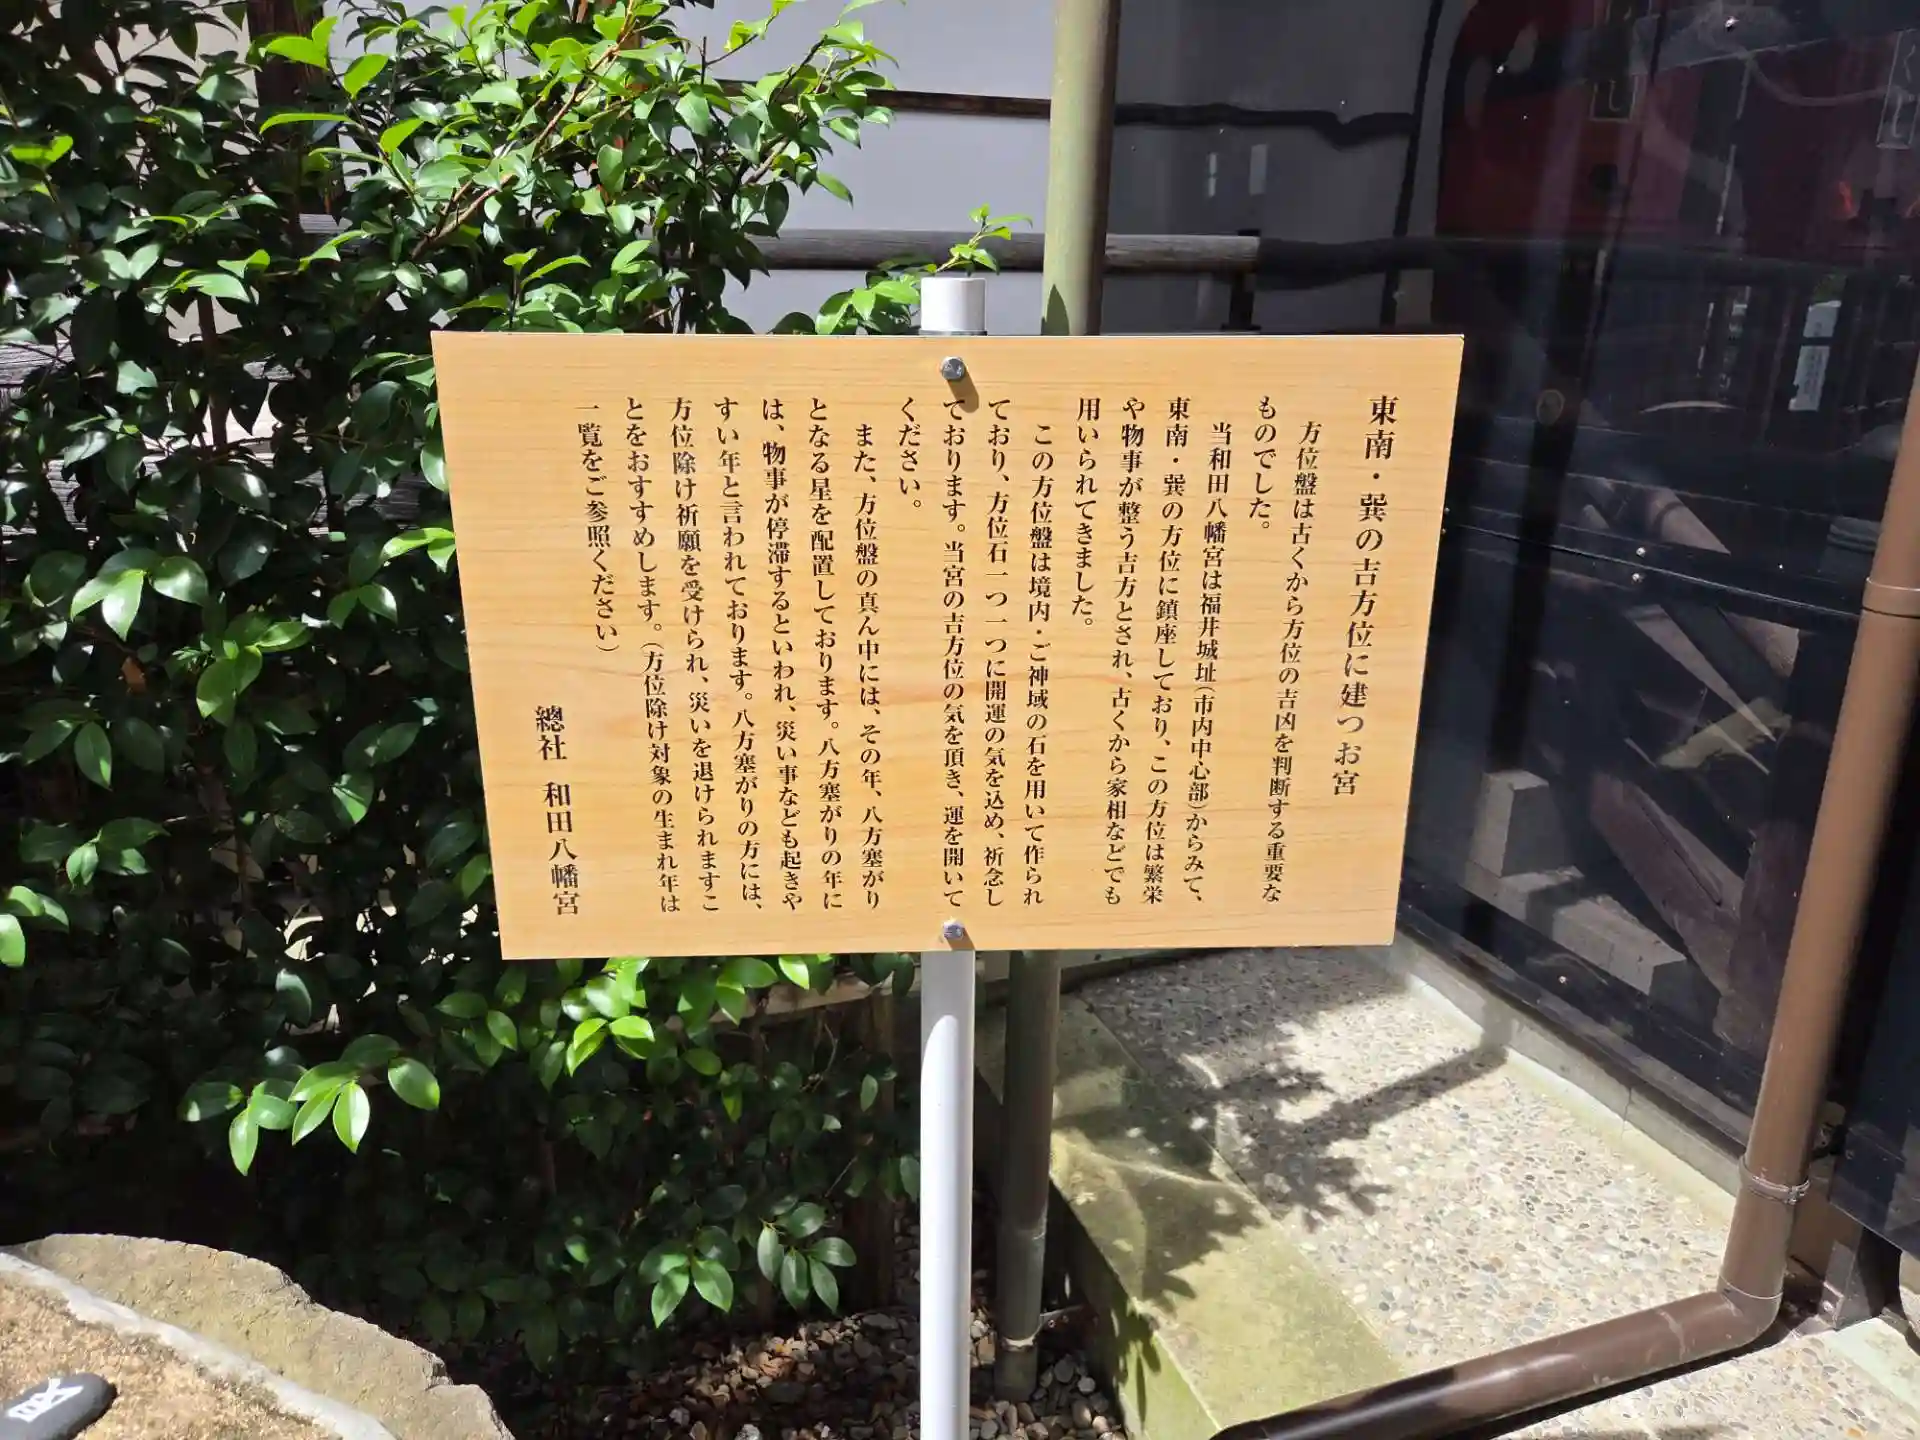 東南・巽の吉方位に建つお宮
方位盤は古くから方位の吉凶を判断する重要な
ものでした。
当和田八幡宮は福井城址(市内中心部)からみて、
東南・巽の方位に鎮座しており、この方位は繁栄
や物事が整う吉方とされ、古くから家相などでも
用いられてきました。
この方位盤は境内・ご神域の石を用いて作られ
ており、方位石一つ一つに開運の気を込め、祈念し
ております。当宮の吉方位の気を頂き、運を開いて
ください。
また、方位盤の真ん中には、その年、八方塞がり
となる星を配置しております。八方塞がりの年に
は、物事が停滞するといわれ、災い事なども起きや
すい年と言われております。八方塞がりの方には、
方位除け祈願を受けられ、災いを退けられますこ
とをおすすめします。(方位除け対象の生まれ年は
一覧をご参照ください)
總社 和田八幡宮